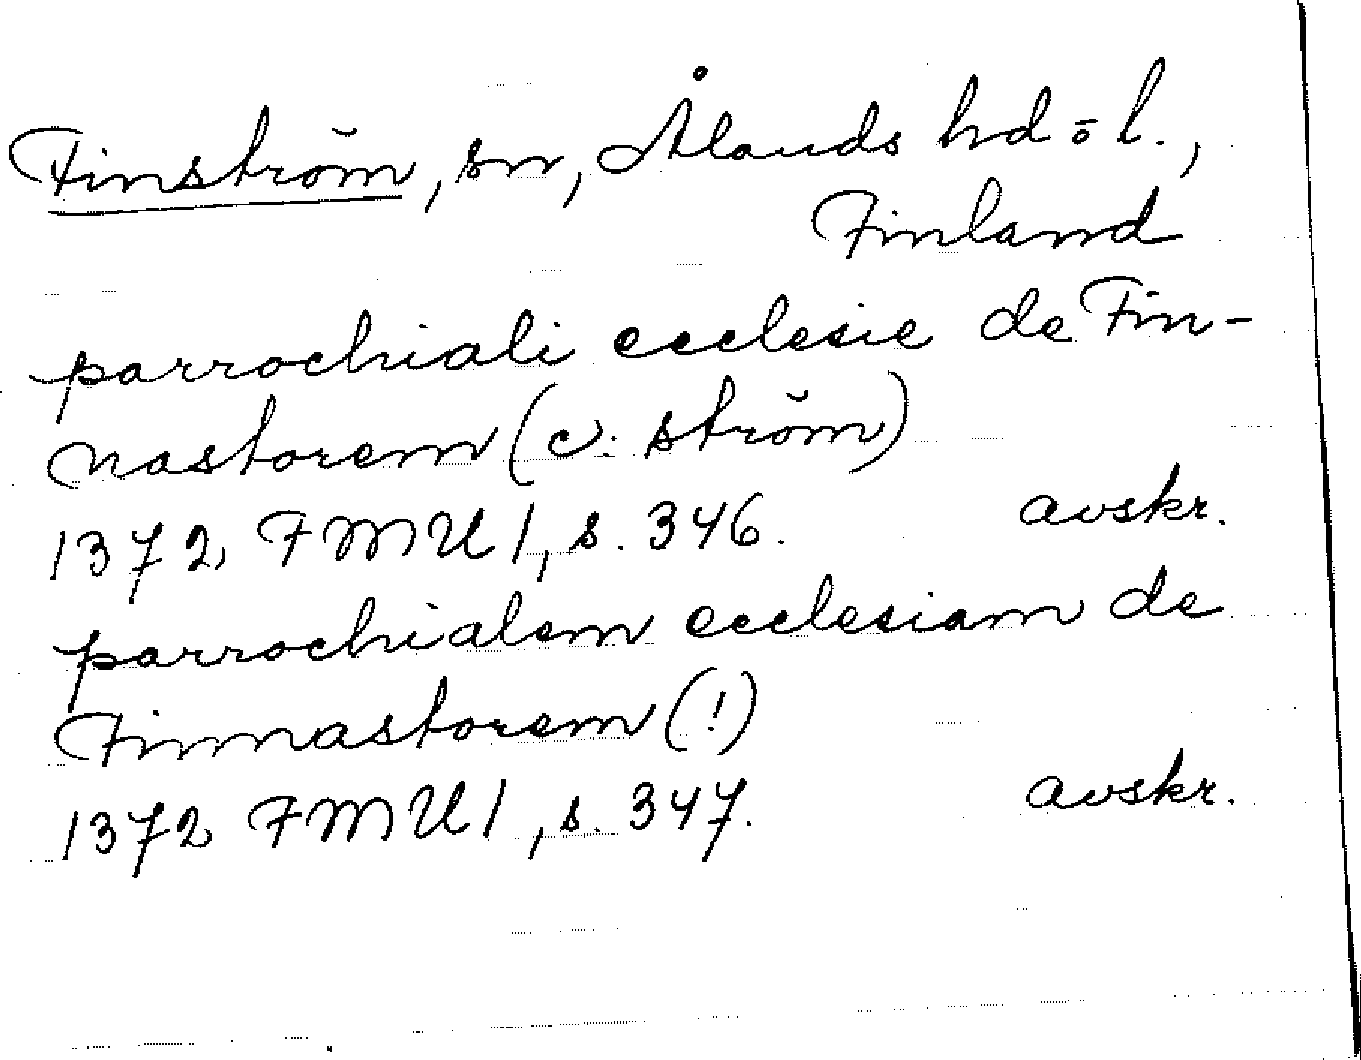 Finström, sn, Ålands hd o l.,
Finland
parrochiali ecclesie de Fin-
nastorem (ɔ: ström)
1372, FMU 1, s. 346. avskr.
parrochialem ecclesiam de
Finnastorem (!)
1372 FMU 1, s. 347. avskr.